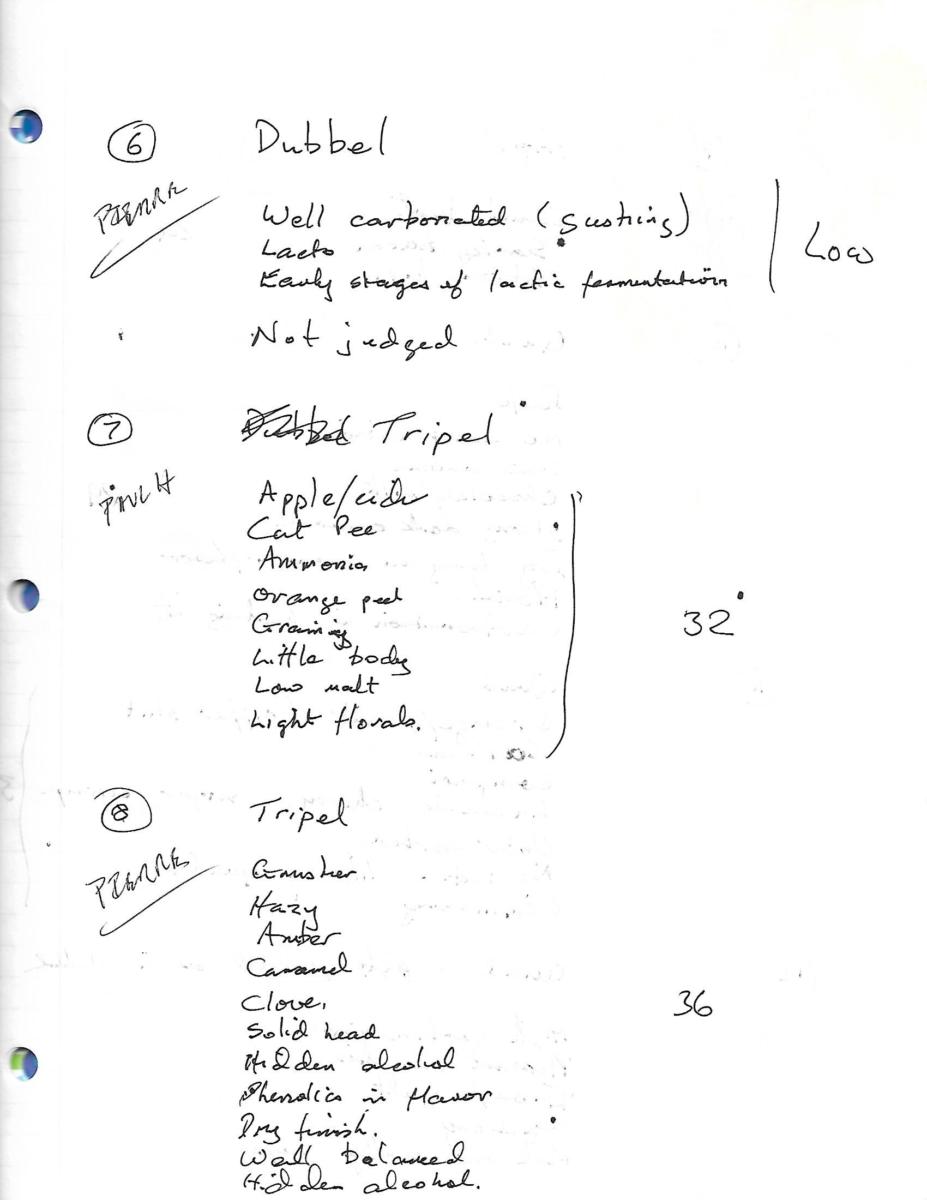 6 Dubbel
PIERRE
Well carbonated (gushing)
Lacto
Low
Early stages of lactic fermentation
Not judged
7 Dubbel Tripel
Apple/cider
Cat Pee
Ammonia
Orange peel
Grainy
32
Little body
Low malt
Light florals.
8 Tripel
PIERRE
Gusher
Hazy
Amber
Caramel
Clove,
36
Solid head
Hidden alcohol
Phenolics in flavor
Dry finish.
Well balanced
Hidden alcohol.